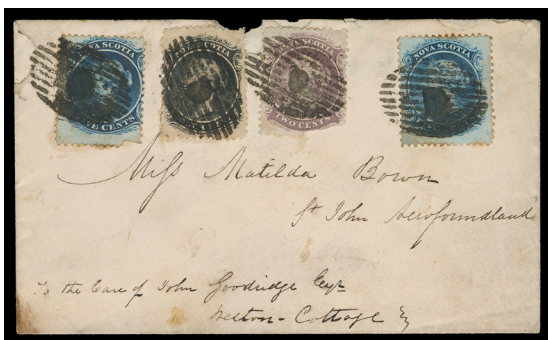 NOVA SCOTIA
E CENTS
SCOTIA
NOVA SCOTIA
TWO CENTS
NOVA SCOTIA
Miss Matilda Bown
St John Newfoundland
To the Care of John Goodridge Esqr
Weston-Cottage